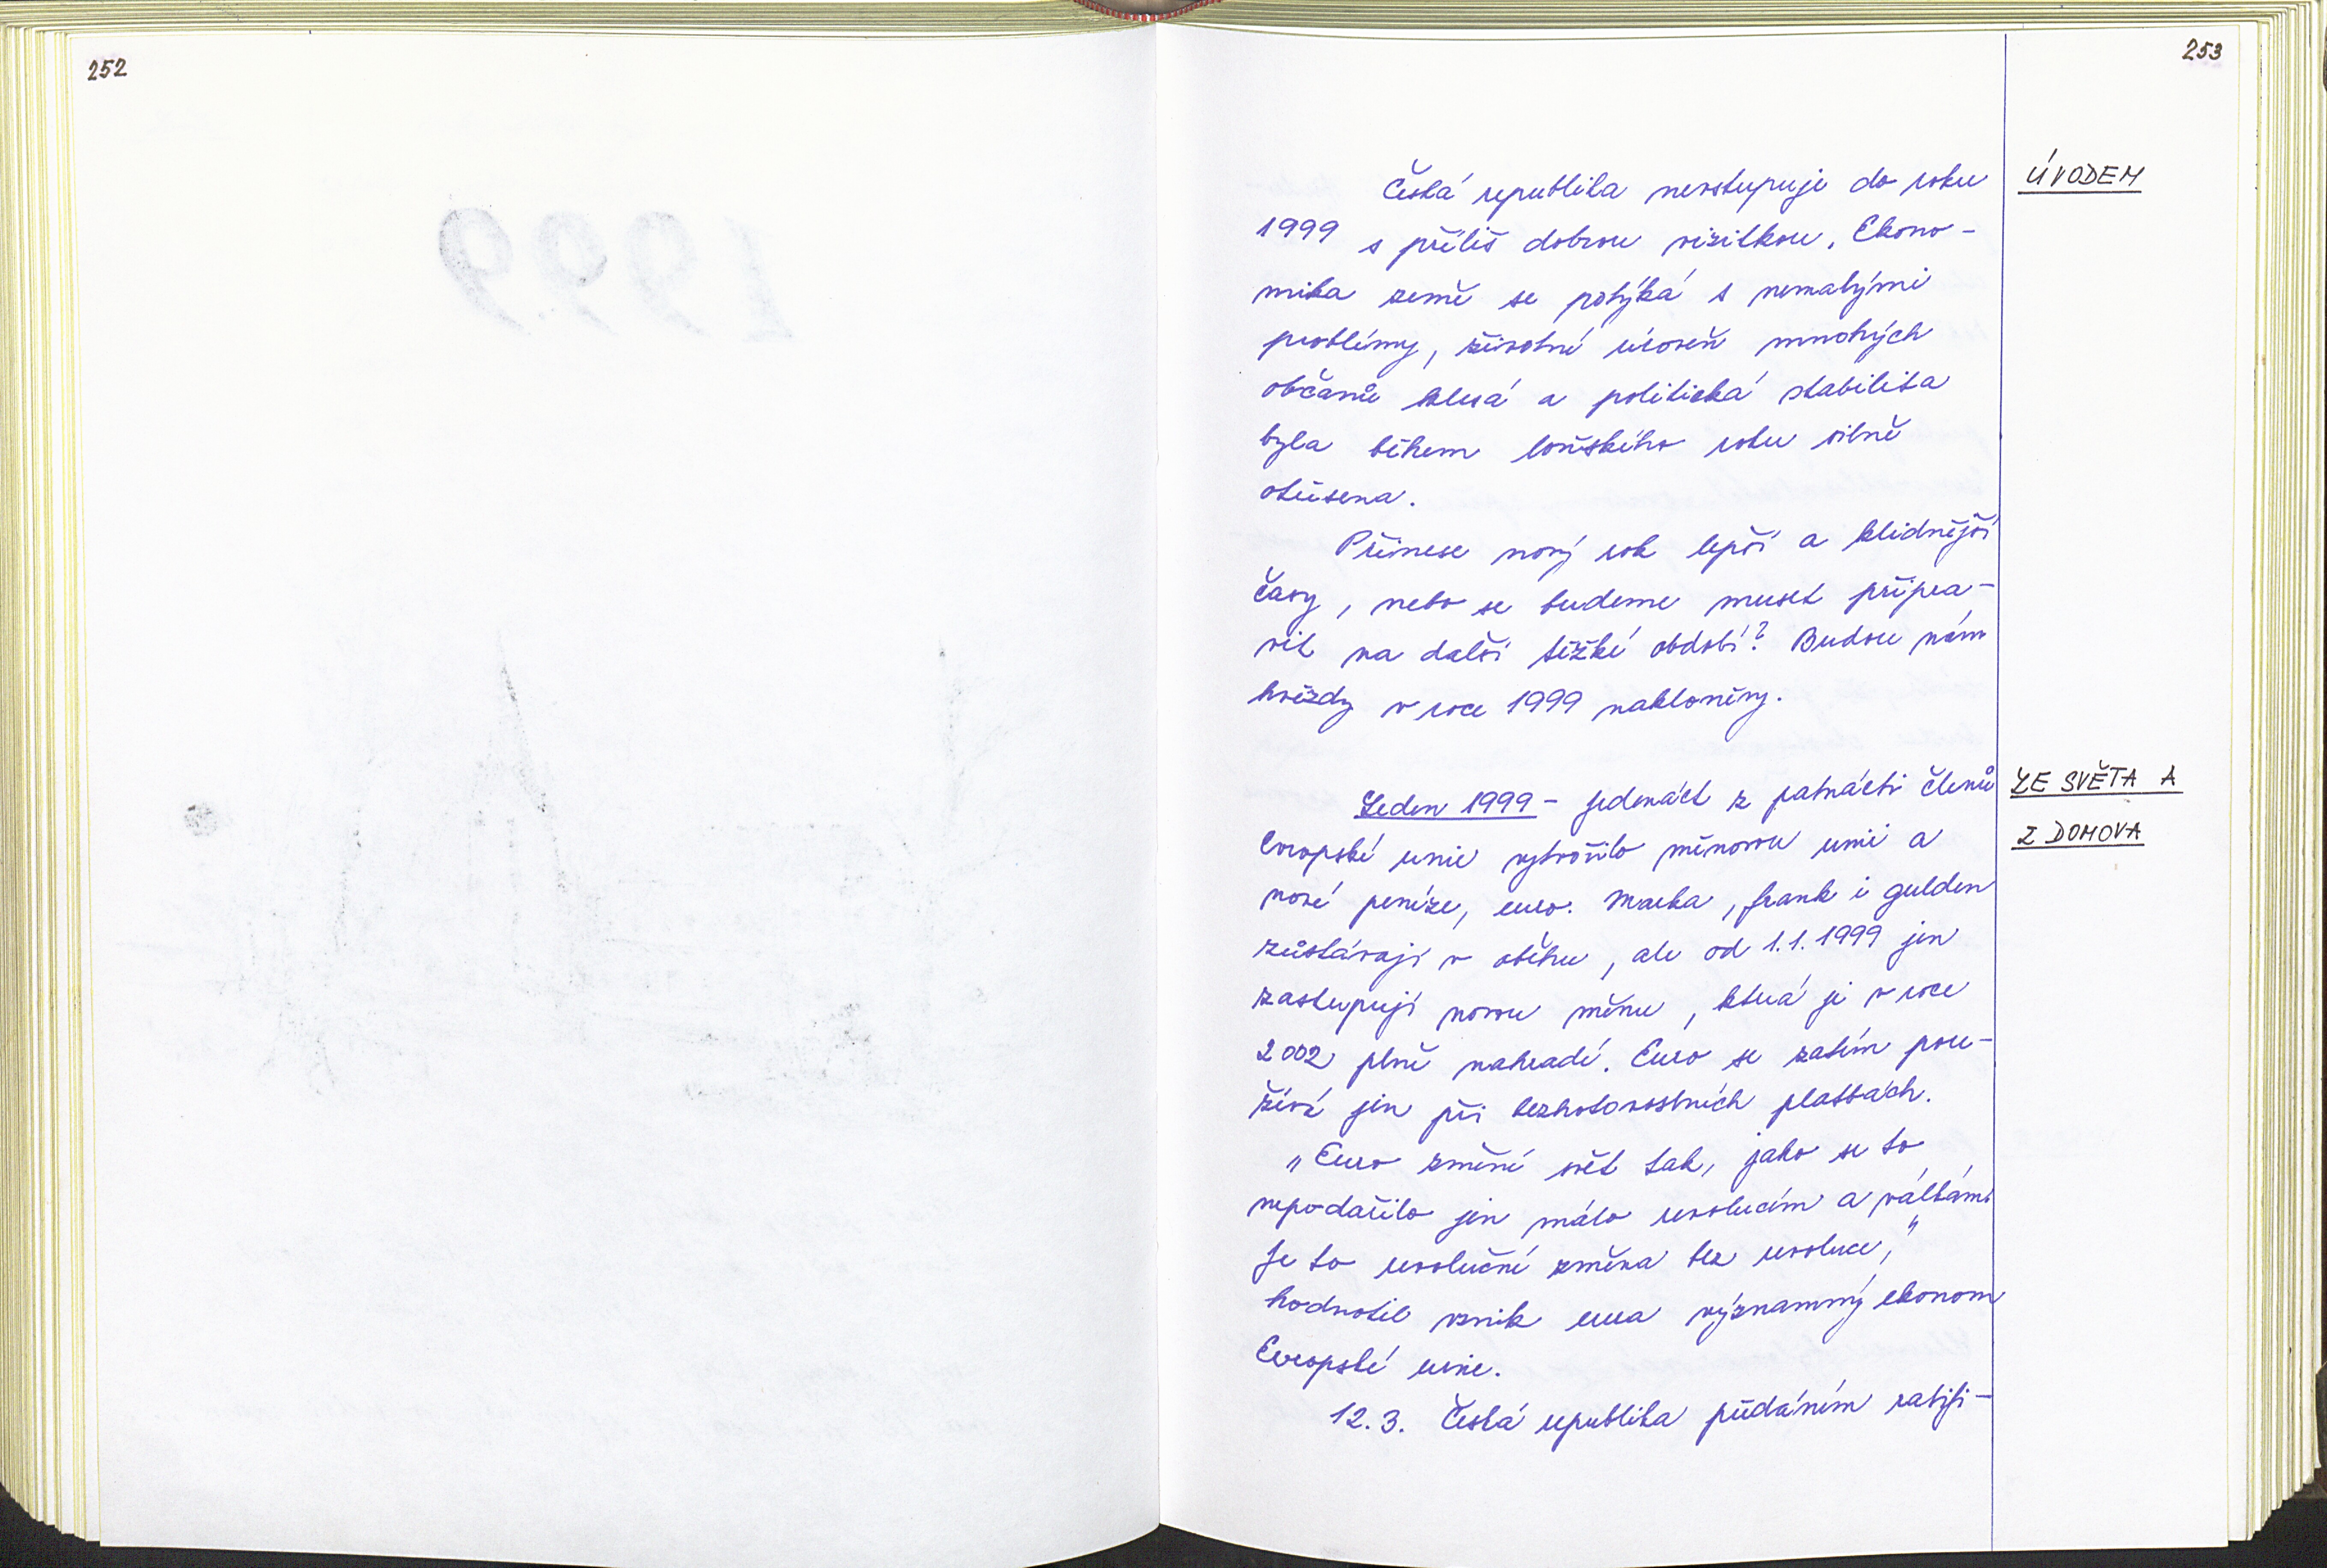 252
253
ÚVODEM
Česká republika nevstupuje do roku
1999 s příliš dobrou vizitkou. Ekono-
mika země se potýká s nemalými
problémy, životní úroveň mnohých
občanů klesá a politická stabilita
byla během loňského roku silně
otřesena.
Přinese nový rok lepší a klidnější
časy, nebo se budeme muset připra-
vit na další těžké období? Budou nám
hvězdy v roce 1999 nakloněny.
ZE SVĚTA A
Z DOMOVA
Leden 1999 - Jedenáct z patnácti členů
Evropské unie vytvořilo měnovou unii a
nové peníze, euro. Marka, frank i gulden
zůstávají v oběhu, ale od 1.1.1999 jen
zastupují novou měnu, která je v roce
2002 plně nahradí. Euro se zatím pou-
žívá jen při bezhotovostních platbách.
„Euro změní svět tak, jako se to
nepodařilo jen málo revolucím a válkám.
Je to revoluční změna bez revoluce,"
hodnotil vznik eura významný ekonom
Evropské unie.
12.3. Česká republika předáním ratifi-